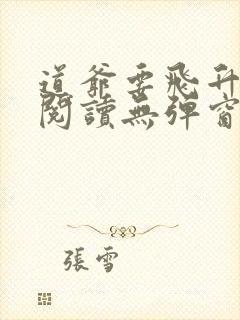 道爺要飛升
閱讀無彈窗
張雪